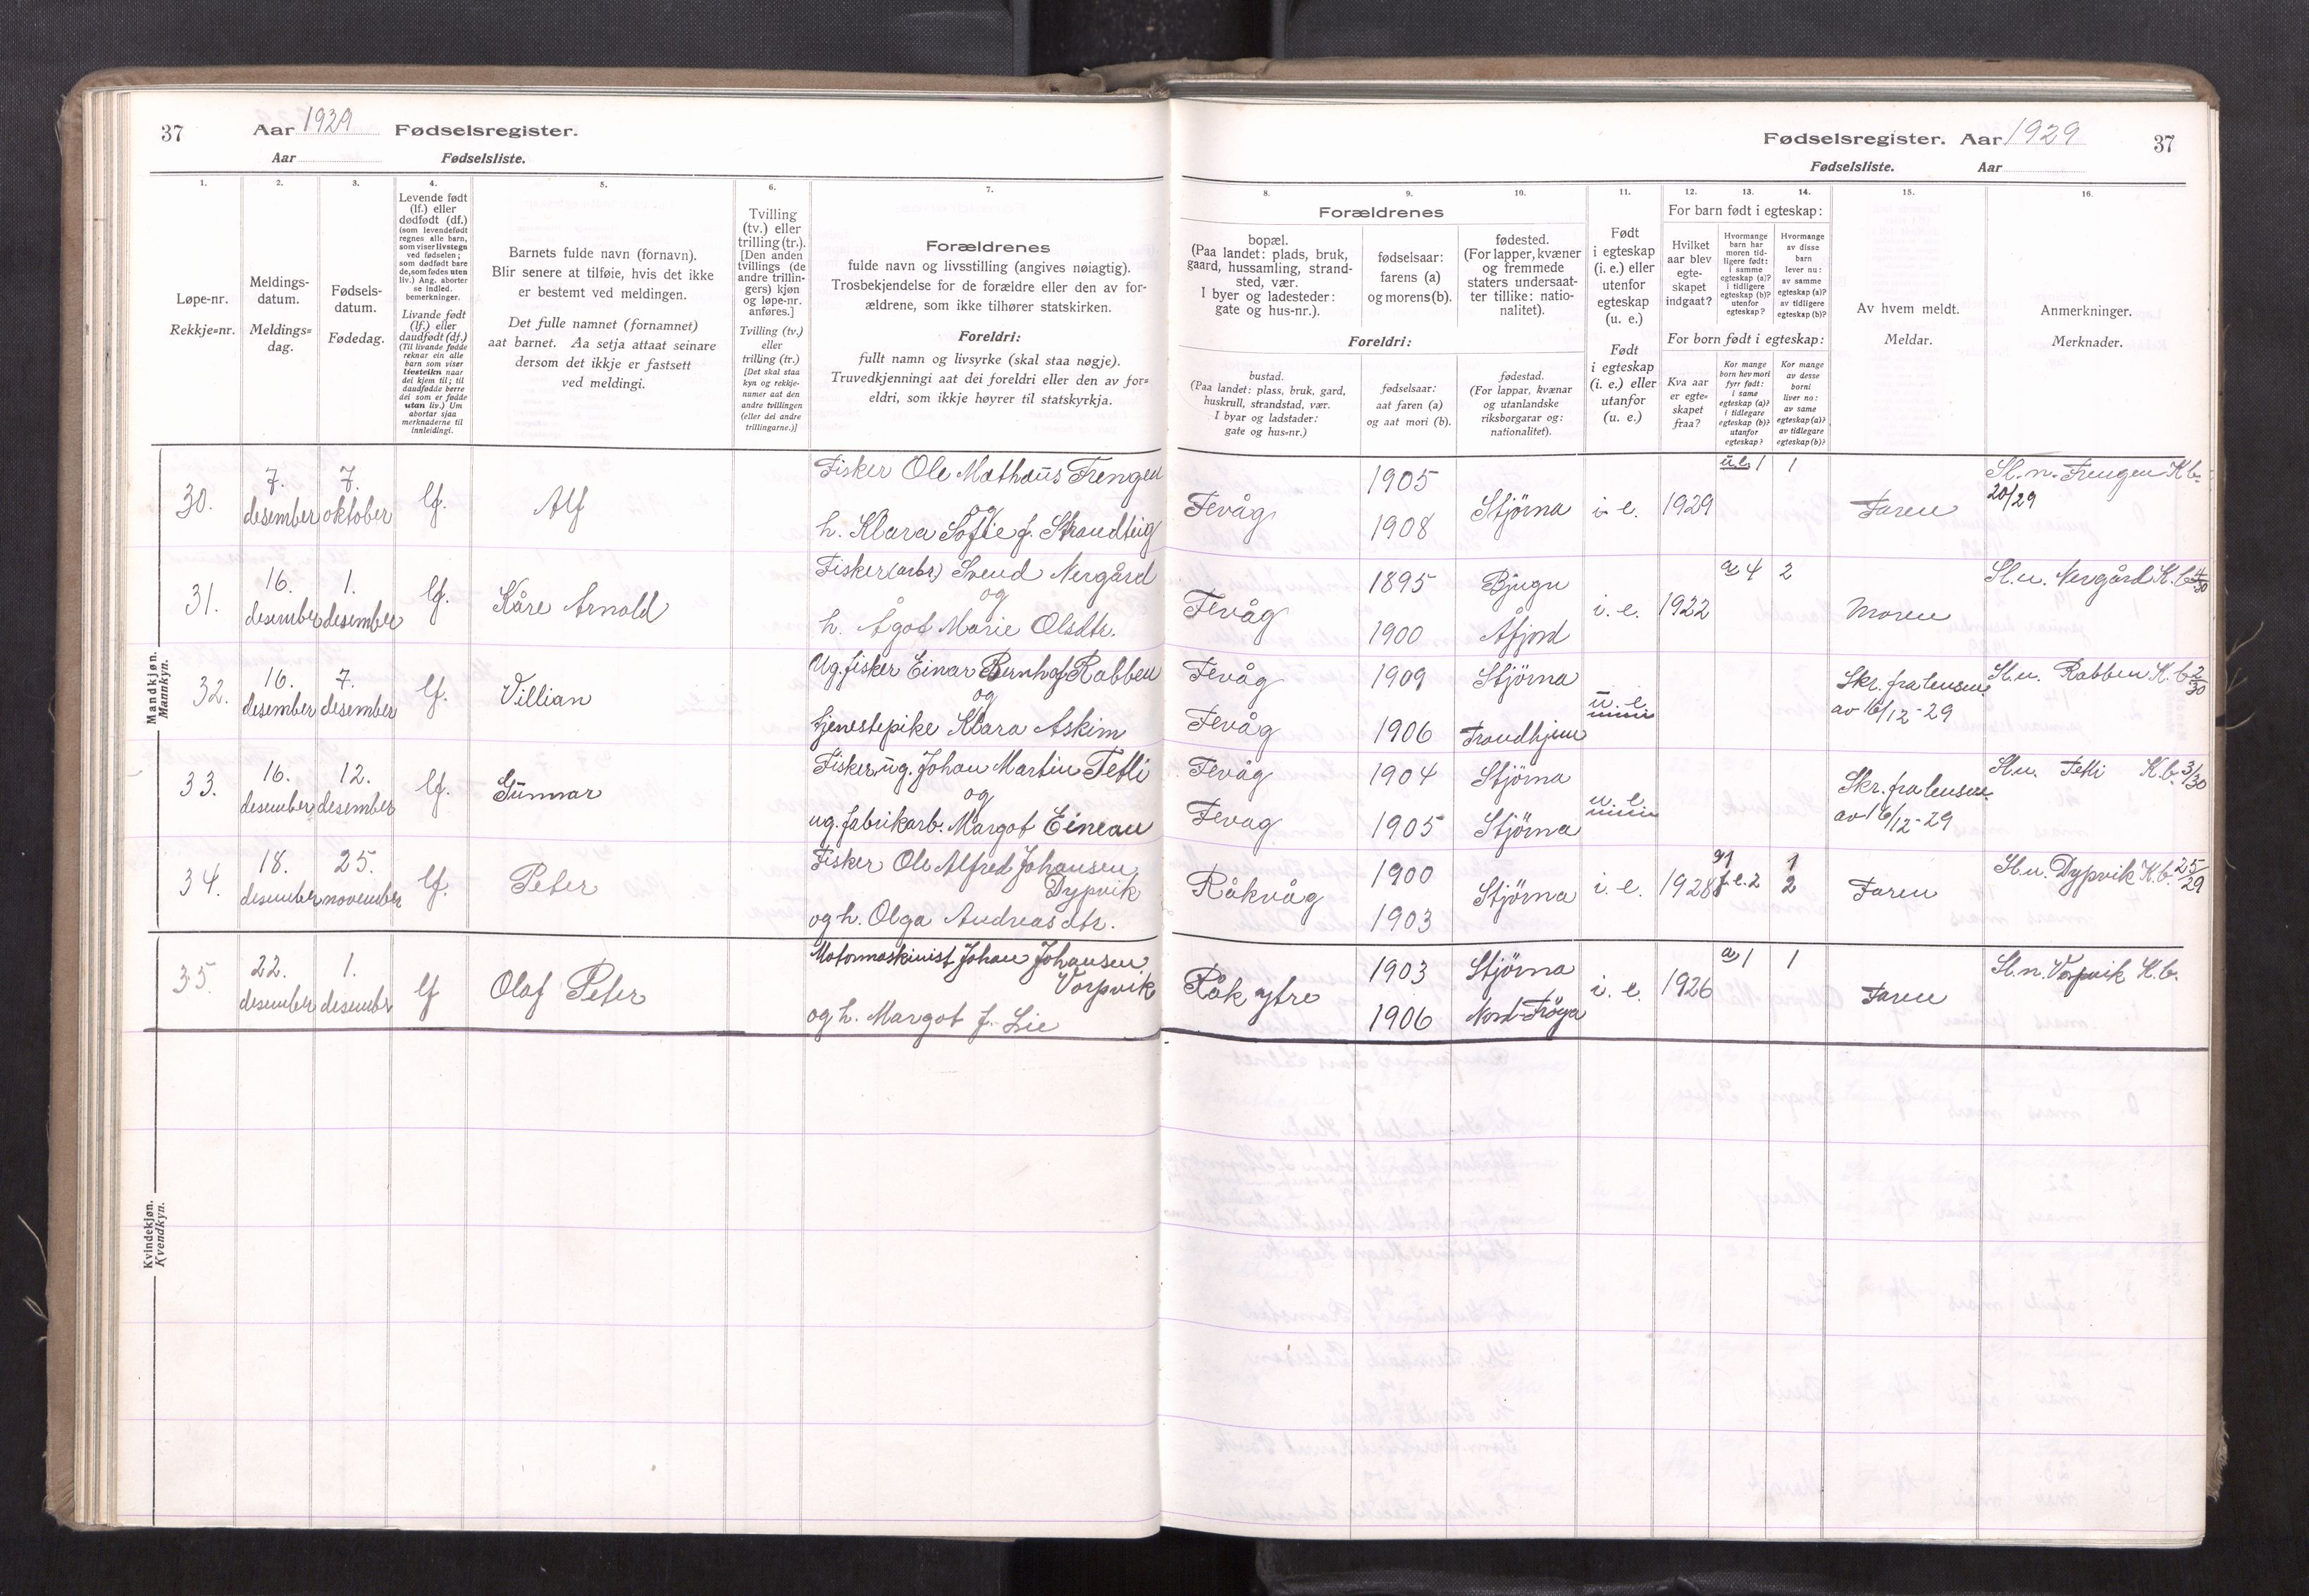 37 Aar 1929 Fødselsregister.
Aar Fødselsliste.
1. 2. 3. 4. 5. 6. 7.
Løpe-nr.
Rekkje=nr.
Meldings-
datum.
Meldings=
dag.
Fødsels-
datum.
Fødedag.
Levende født
(lf.) eller
dødfødt (df.)
(som levendefødt
regnes alle barn,
som viser livstegn
ved fødselen;
som dødfødt bare
de, som fødes uten
liv.) Ang. aborter
se indled.
bemerkninger.
Livande født
(lf.) eller
daudfødt (df.)
(Til livande fødde
reknar ein alle
barn som viser
livsteikn naar
dei kjem til; til
daudfødde berre
dei som er fødde
utan liv.) Um
abortar sjaa
merknaderne til
innleidingi.
Barnets fulde navn (fornavn).
Blir senere at tilføie, hvis det ikke
er bestemt ved meldingen.
Det fulle namnet (fornamnet)
aat barnet. Aa setja attaat seinare
dersom det ikkje er fastsett
ved meldingi.
Tvilling
(tv.) eller
trilling (tr.).
[Den anden
tvillings (de
andre trillin-
gers) kjøn
og løpe-nr.
anføres.]
Tvilling (tv.)
eller
trilling (tr.)
[Det skal staa
kyn og rekkje-
numer aat den
andre tvillingen
(eller dei andre
trillingarne.)]
Forældrenes
fulde navn og livsstilling (angives nøiagtig).
Trosbekjendelse for de forældre eller den av for-
ældrene, som ikke tilhører statskirken.
Foreldri:
fullt namn og livsyrke (skal staa nøgje).
Truvedkjenningi aat dei foreldri eller den av for=
eldri, som ikkje høyrer til statskyrkja.
Mandkjøn.
Mannkyn.
30. 7. desember 7. oktober lf. Alf
Fisker Ole Mathæus Frengen
og
h. Klara Sofie f. Strandteig
31. 16. desember 1. desember lf. Kåre Arnold
Fisker(arbr) Svend Nergård
og
h. Ågot Marie Olsdtr.
32. 16. desember 7. desember lf. Villian
Ug. fisker Einar Bernhof Rabben
og
tjenestepike Klara Askim
33. 16. desember 12. desember lf. Gunnar
Fisker, ug. Johan Martin Tetli
og
ug. fabrikarb. Margot Eineau
34. 18. desember 25. november lf. Peter
Fisker Ole Alfred Johansen
Dypvik
og h. Olga Andreasdtr.
35. 22. desember 1. desember lf Olaf Peter
Motormaskinist Johan Johansen
Vorpvik
og h. Margot f. Lie
Kvindekjøn.
Kvendkyn.
Fødselsregister. Aar 1929 37
Fødselsliste. Aar
8. 9. 10. 11. 12. 13. 14. 15. 16.
Forældrenes
bopæl.
(Paa landet: plads, bruk,
gaard, hussamling, strand-
sted, vær.
I byer og ladesteder:
gate og hus-nr.).
fødselsaar:
farens (a)
og morens (b).
fødested.
(For lapper, kvæner
og fremmede
staters undersaat-
ter tillike: natio-
nalitet).
Foreldri:
bustad.
(Paa landet: plass, bruk, gard,
huskrull, strandstad, vær.
I byar og ladstader:
gate og hus=nr.)
fødselsaar:
aat faren (a)
og aat mori (b).
fødestad.
(For lappar, kvænar
og utanlandske
riksborgarar og:
nationalitet).
Født
i egteskap
(i. e.) eller
utenfor
egteskap
(u. e.)
Født
i egteskap
(i. e.) eller
utanfor
(u. e.)
For barn født i egteskap:
Hvilket
aar blev
egte-
skapet
indgaat?
Hvormange
barn har
moren tid-
ligere født:
i samme
egteskap (a)?
i tidligere
egteskap (b)?
utenfor
egteskap?
Hvormange
av disse
barn
lever nu:
av samme
egteskap (a)?
av tidligere
egteskap (b)?
For born født i egteskap:
Kva aar
er egte=
skapet
fraa?
Kor mange
born hev mori
fyrr født:
i same
egteskap (a)?
i tidlegare
egteskap (b)?
utanfor
egteskap?
Kor mange
av desse
borni
liver no:
av same
egteskap (a)?
av tidlegare
egteskap (b)?
Av hvem meldt.
Meldar.
Anmerkninger.
Merknader.
Fevåg 1905 1908 Stjørna i. e. 1929 u.e. 1 1 Faren Sl. n. Frengen K.b. 20/29
Fevåg 1895 Bjugn i. e. 1922 a 4 2 Moren Sl. n. Nergård K.b.
1900 Åfjord
Fevåg 1909 Stjørna u. e. Skr. fra lensm. Sl. n. Rabben K.b. 2/30
Fevåg 1906 Trondhjem av 16/12-29
Fevåg 1904 Stjørna u. e. Skr. fra lensm. Sl. n. Tetli K.b. 3/30
Fevåg 1905 Stjørna av 16/12-29
Råkvåg 1900 1903 Stjørna i. e. 1928 a 1 1 2 2 Faren Sl. n. Dypvik K.b. 25/29
Råk ytre 1903 Stjørna i. e. 1926 a 1 1 Faren Sl. n. Vorpvik K.b.
1906 Nord-Frøya